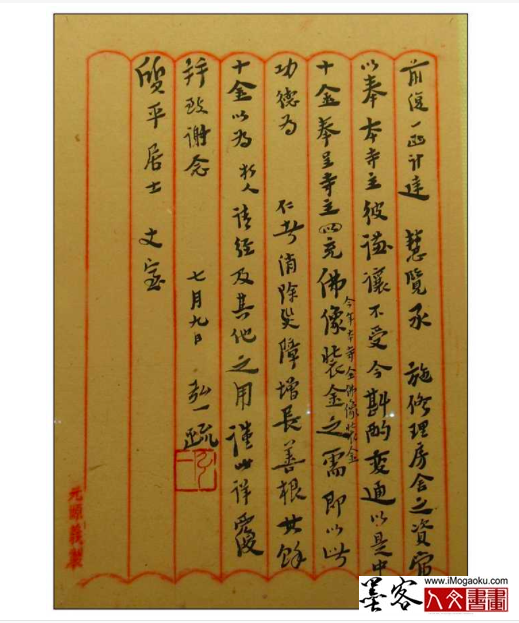 前復一函計達 慧覽承 施修理房舍之資
以奉本寺主彼謙讓不受今斟酌變通以是中
十金奉呈寺主以充佛像裝金之需即以此
今年本寺全佛像裝金
功德為 仁者消除災障增長善根其餘
十金以為朽人請經及其他之用謹此詳覆
并致謝念 七月九日 弘一疏
質平居士 丈室
義製
www.iMogaoku.com
墨客 人文書畫